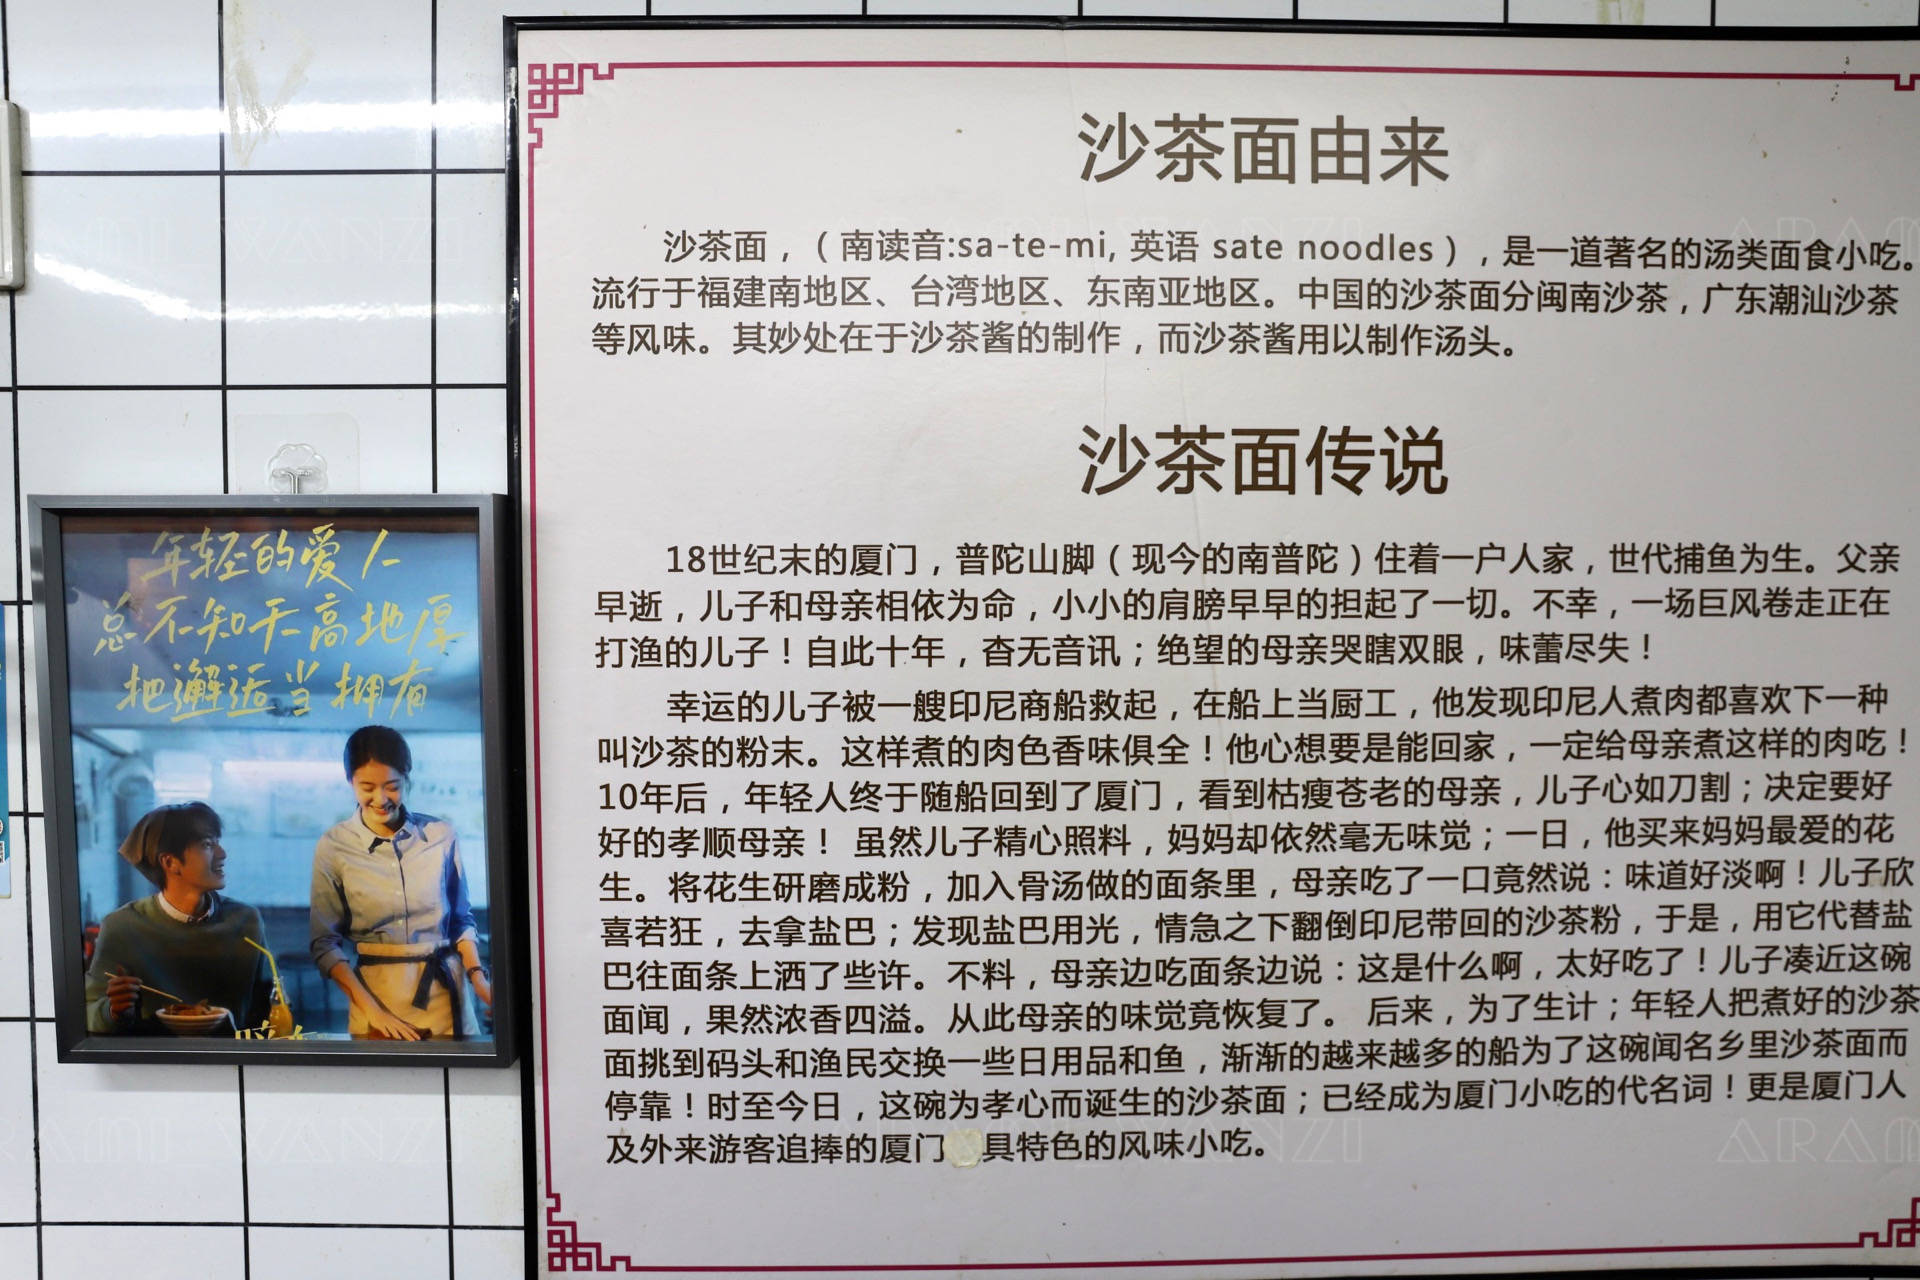 年轻的爱人
总不知天高地厚
把邂逅当拥有
沙茶面由来
沙茶面，（南读音:sa-te-mi, 英语 sate noodles），是一道著名的汤类面食小吃。
流行于福建南地区、台湾地区、东南亚地区。中国的沙茶面分闽南沙茶，广东潮汕沙茶
等风味。其妙处在于沙茶酱的制作，而沙茶酱用以制作汤头。
沙茶面传说
18世纪末的厦门，普陀山脚（现今的南普陀）住着一户人家，世代捕鱼为生。父亲
早逝，儿子和母亲相依为命，小小的肩膀早早的担起了一切。不幸，一场巨风卷走正在
打渔的儿子！自此十年，杳无音讯；绝望的母亲哭瞎双眼，味蕾尽失！
幸运的儿子被一艘印尼商船救起，在船上当厨工，他发现印尼人煮肉都喜欢下一种
叫沙茶的粉末。这样煮的肉色香味俱全！他心想要是能回家，一定给母亲煮这样的肉吃！
10年后，年轻人终于随船回到了厦门，看到枯瘦苍老的母亲，儿子心如刀割；决定要好
好的孝顺母亲！ 虽然儿子精心照料，妈妈却依然毫无味觉；一日，他买来妈妈最爱的花
生。将花生研磨成粉，加入骨汤做的面条里，母亲吃了一口竟然说：味道好淡啊！儿子欣
喜若狂，去拿盐巴；发现盐巴用光，情急之下翻倒印尼带回的沙茶粉，于是，用它代替盐
巴往面条上洒了些许。不料，母亲边吃面条边说：这是什么啊，太好吃了！儿子凑近这碗
面闻，果然浓香四溢。从此母亲的味觉竟恢复了。 后来，为了生计；年轻人把煮好的沙茶
面挑到码头和渔民交换一些日用品和鱼，渐渐的越来越多的船为了这碗闻名乡里沙茶面而
停靠！时至今日，这碗为孝心而诞生的沙茶面；已经成为厦门小吃的代名词！更是厦门人
及外来游客追捧的厦门 具特色的风味小吃。
ARAMI WANZI